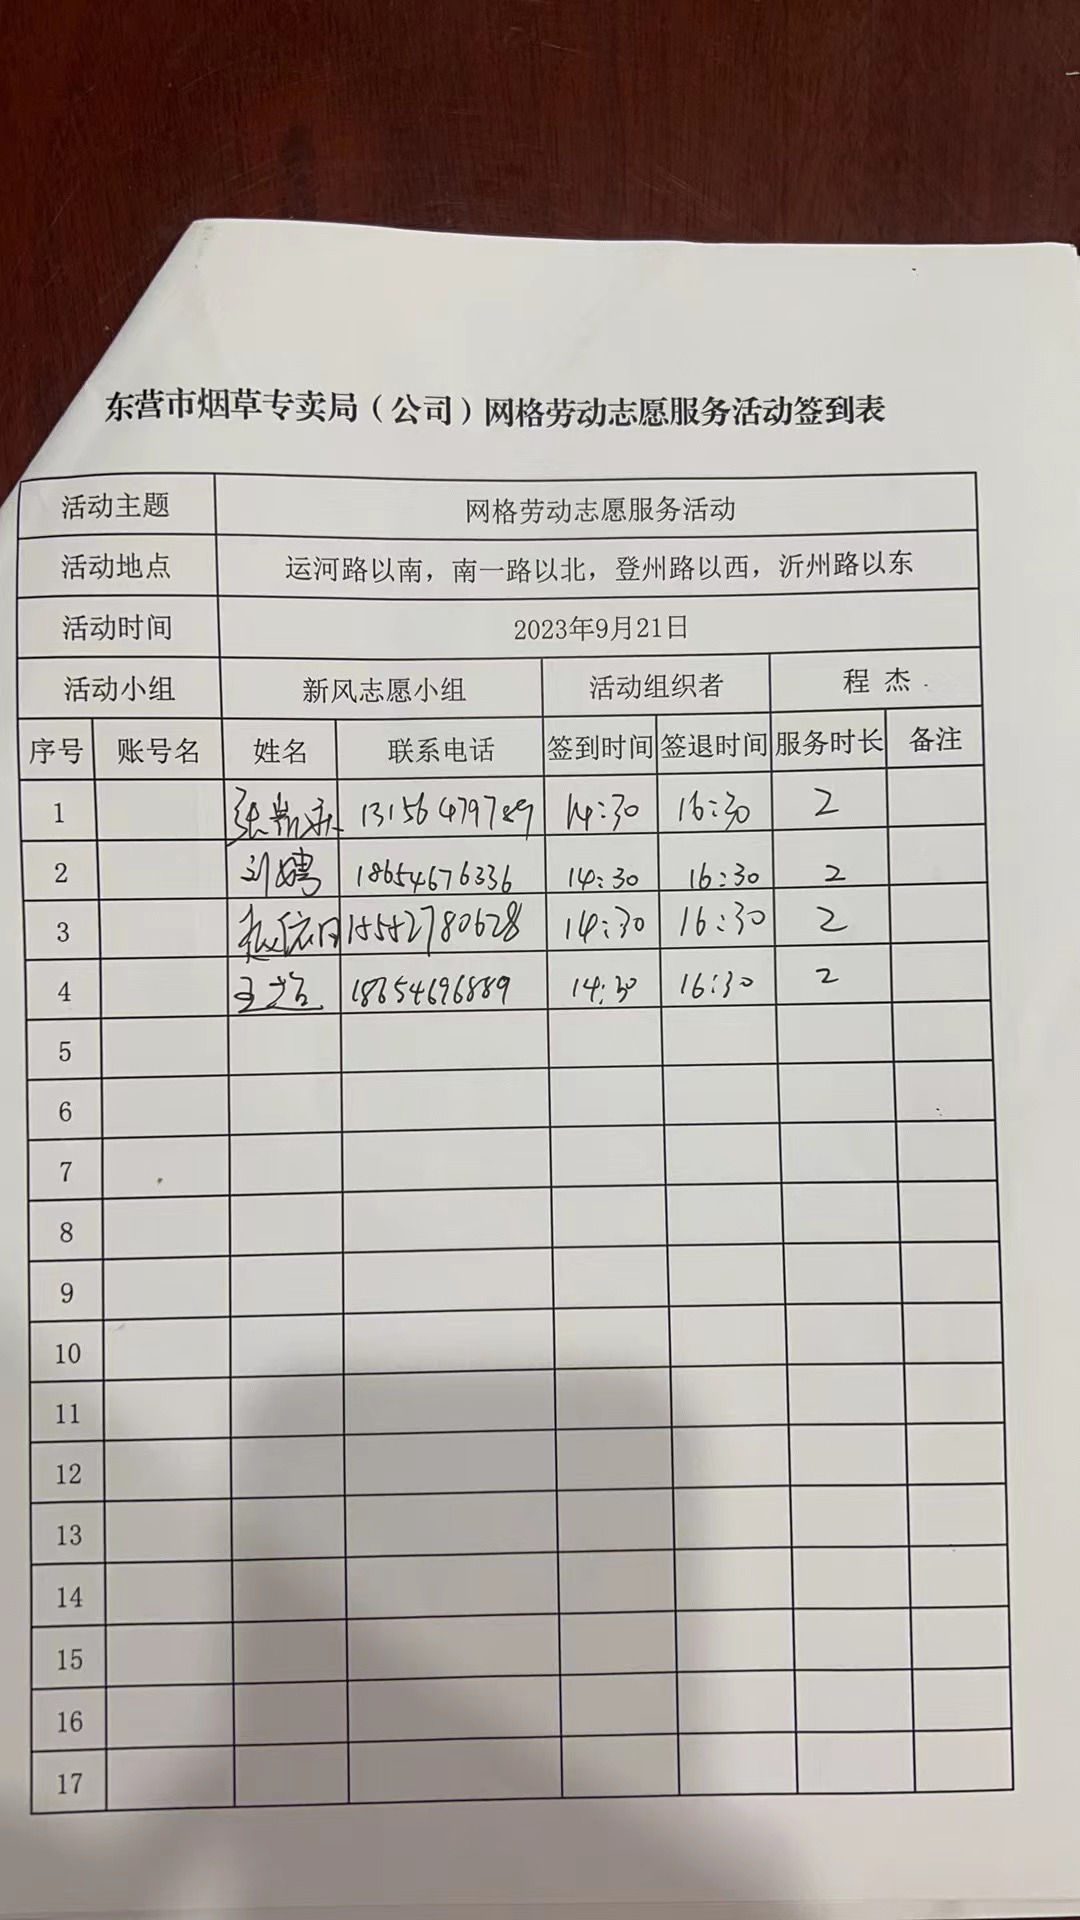 东营市烟草专卖局（公司）网格劳动志愿服务活动签到表
活动主题 网格劳动志愿服务活动
活动地点 运河路以南，南一路以北，登州路以西，沂州路以东
活动时间 2023年9月21日
活动小组 新风志愿小组 活动组织者 程 杰
序号 账号名 姓名 联系电话 签到时间 签退时间 服务时长 备注
1 13156479789 14:30 16:30 2
2 刘娉 18654676336 14:30 16:30 2
3 15552780628 14:30 16:30 2
4 18654696889 14:30 16:30 2
5
6
7
8
9
10
11
12
13
14
15
16
17